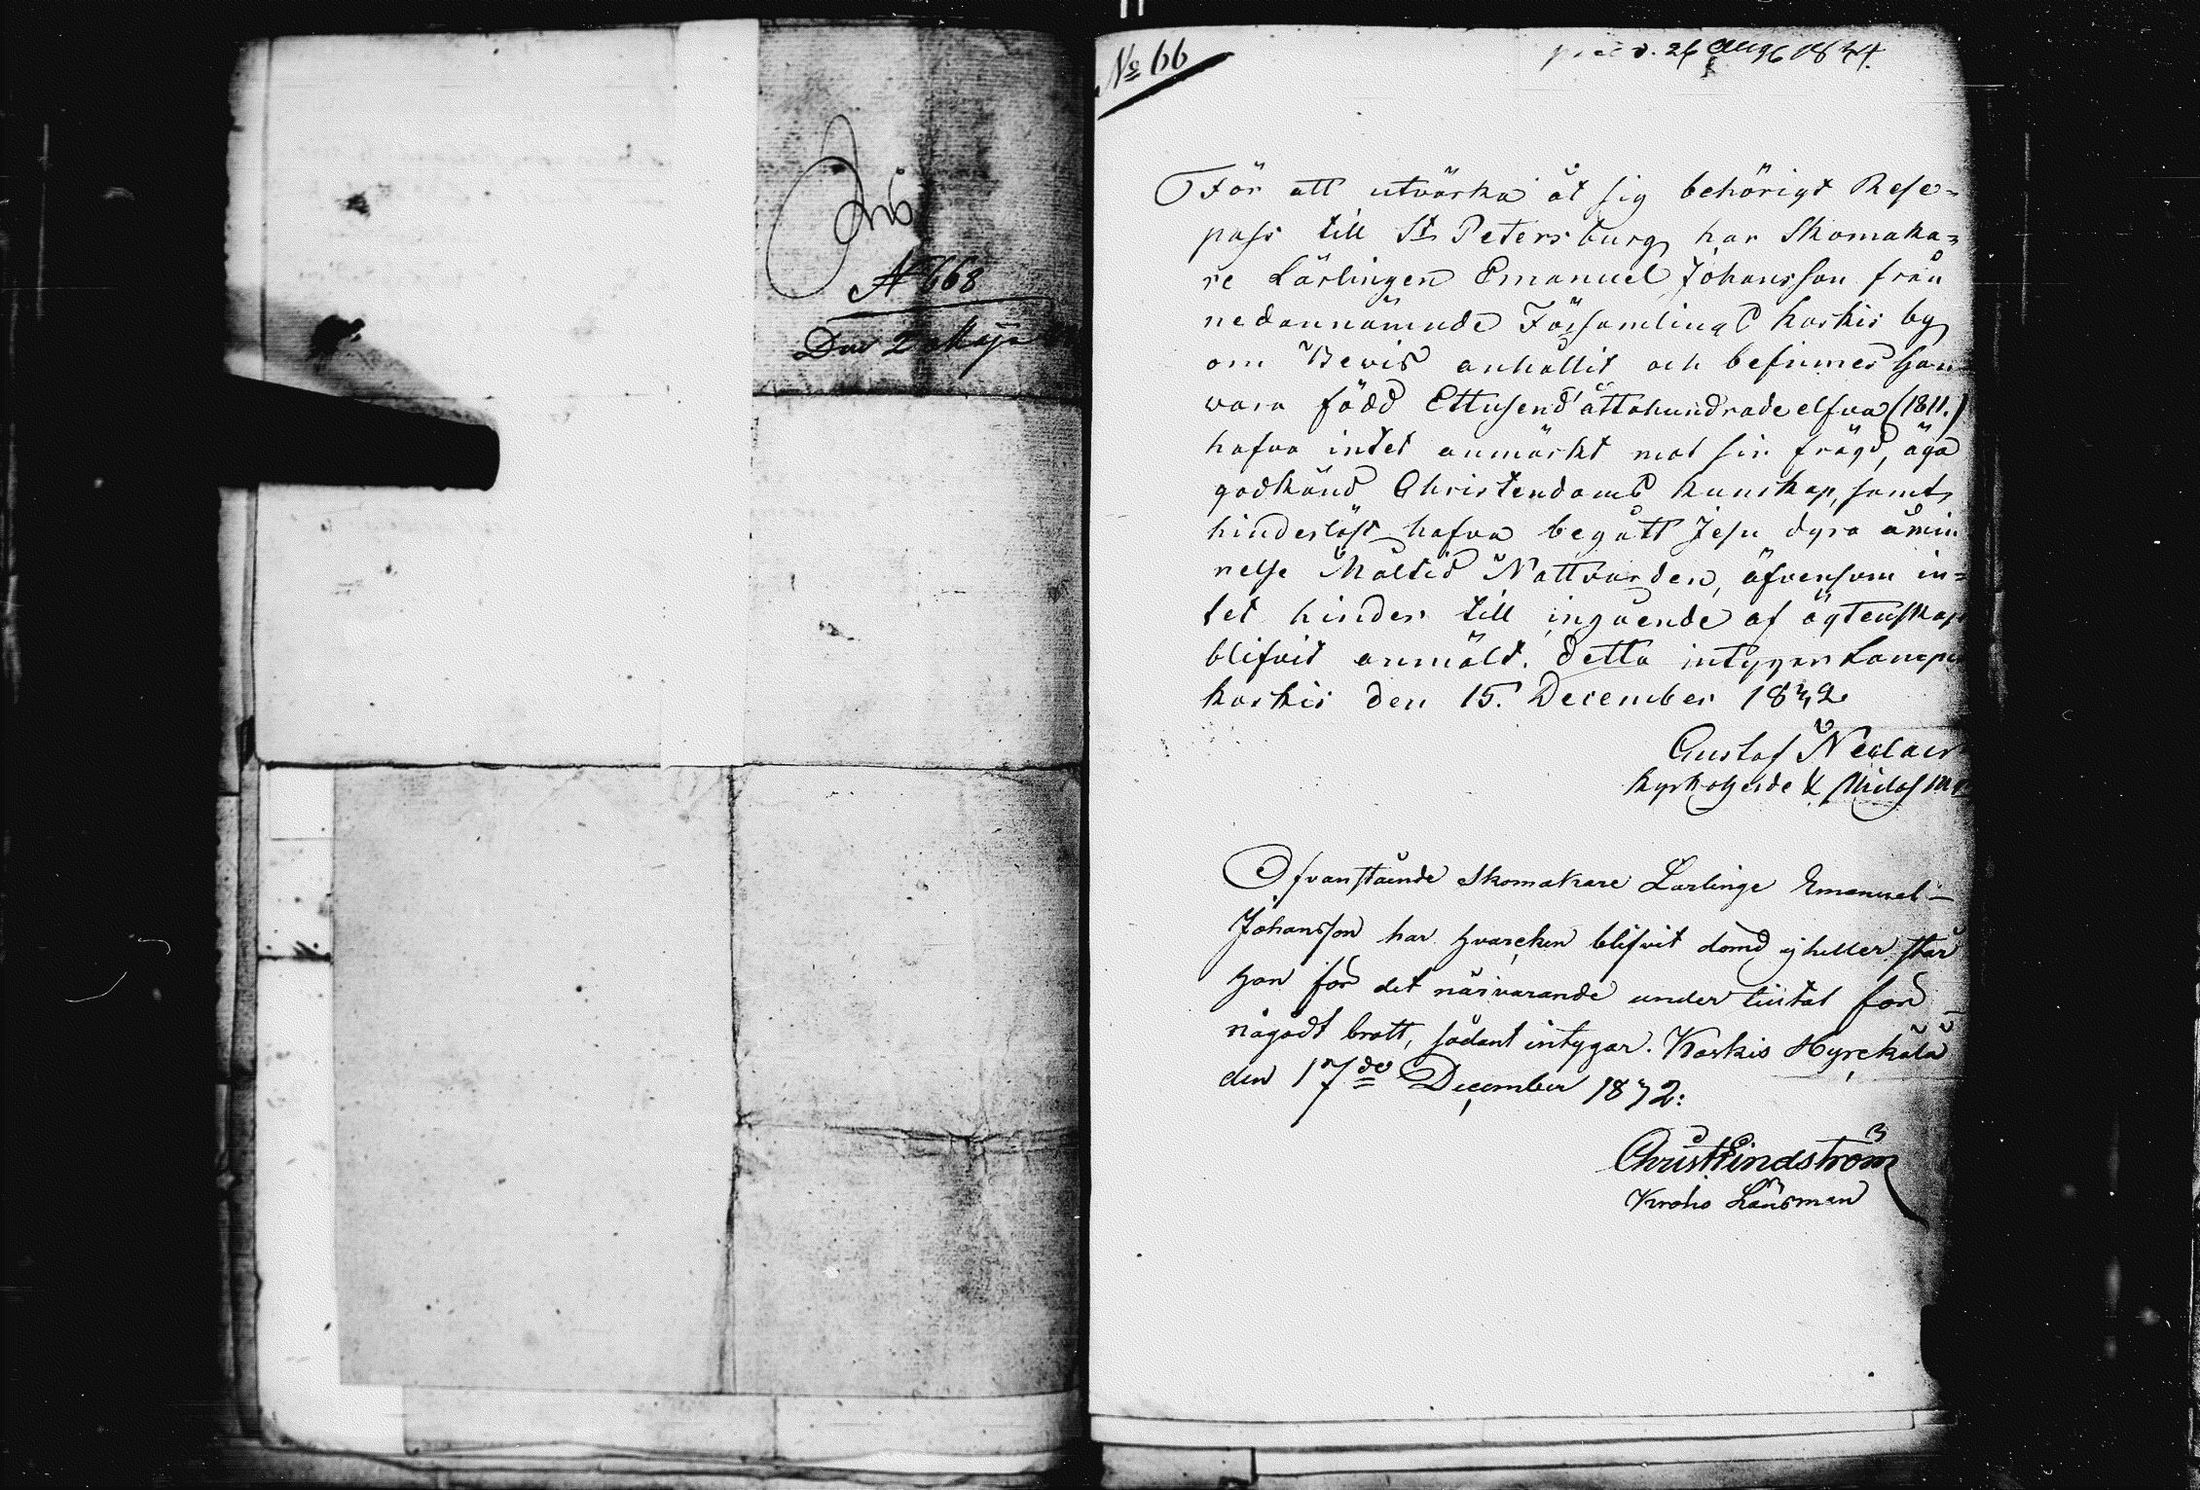 N 668
Den 2 Maji
No 66
26 Aug 1834.
För att utvärka åt sig behörigt Rese=
pass till St Petersburg har Skomaka=
re Lärlingen Emanuel Johansson från
nedannämnde Församling Koskis by
om Bewis anhållit och befinnes han
vara född Ettusend åttahundrade elfva (1811.)
hafva intet anmärkt mot sin frägd, äga
godkänd Christendoms kunskap, samt
hinderlöst hafva begått Jesu dyra åmin
nelse Måltid Nattvarden, äfvensom in=
tet hinder till ingående af ägtenskap
blifvit anmäldt. Detta intygar Lampis
Koskis den 15. December 1832
Gustaf
Kyrkoherde &
Ofvanstående Skomakare Lärlinge Emanuel
Johansson har hvarcken blifvit dömd ej heller står
han för det närvarande under tiltal för
någodt brott, sådant intygar. Koskis Hyrckälä
den 17de December 1832:
Christ Lindström
Krono Länsman